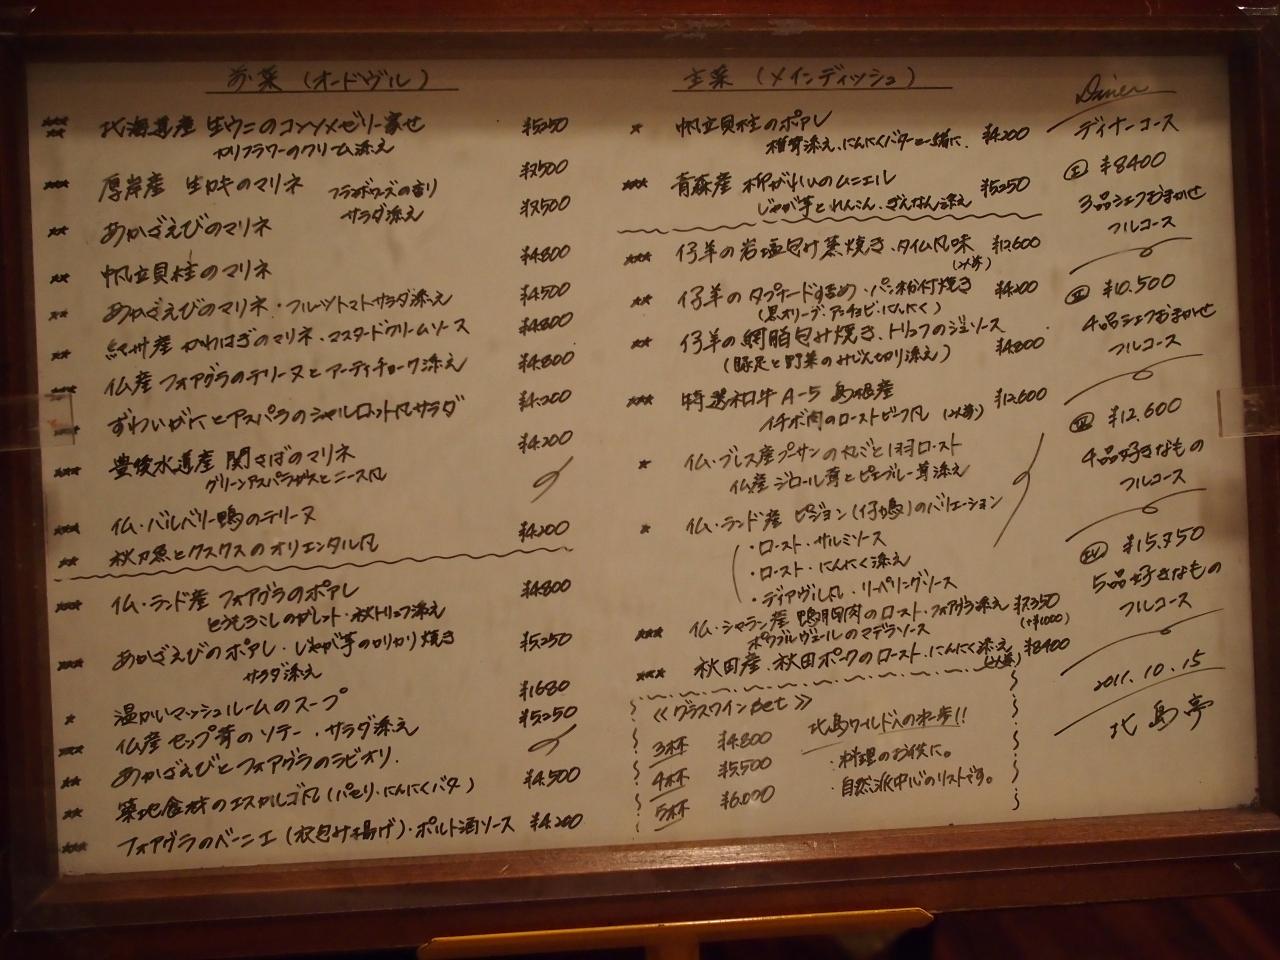 前菜 (オードヴル)
*** ** 北海道産 生ウニのコンソメゼリー寄せ ¥5250
カリフラワーのクリーム添え
*** 厚岸産 生カキのマリネ フランボワーズの香り
サラダ添え
** あかざえびのマリネ
¥4800
** 帆立貝柱のマリネ
** あかざえびのマリネ・フルーツトマト・サラダ添え ¥4500
** 紀州産 かわはぎのマリネ・マスタードクリームソース ¥4800
仏産 フォアグラのテリーヌとアーティチョーク添え ¥4800
ずわいがにとアスパラのシャルロット風サラダ ¥4200
*** 豊後水道産 関さばのマリネ ¥4200
グリーンアスパラガスとニース風
*** 仏・バルバリー鴨のテリーヌ
** 秋刀魚とクスクスのオリエンタル風 ¥4200
*** 仏・ランド産 フォアグラのポアレ ¥4800
とうもろこしのガレット・秋トリュフ添え
*** あかざえびのポアレ・じゃが芋のカリカリ焼き ¥5250
サラダ添え
* 温かいマッシュルームのスープ ¥1680
*** 仏産 セップ茸のソテー・サラダ添え ¥5250
** あかざえびとフォアグラのラビオリ.
** 築地食材のエスカルゴ風 (パセリ・にんにくバター) ¥4,500
*** フォアグラのベーニエ (衣包み揚げ)・ポルト酒ソース ¥4200
主菜 (メインディッシュ)
* 帆立貝柱のポアレ
椎茸添え、にんにくバターと一緒に. ¥4200
*** 青森産 柳がれいのムニエル
じゃが芋とれんこん、ぎんなん添え ¥5250
*** 仔羊の岩塩包み蒸焼き、タイム風味 ¥12,600
(2人前)
** 仔羊のタプナードすすめ・パン粉付焼き ¥4200
(黒オリーブ・アンチョビ・にんにく)
** 仔羊の網脂包み焼き、トリュフのジュソース
(豚足と野菜のみじん切り添え) ¥4800
*** 特選和牛A-5 島根産 ¥12,600
イチボ肉のローストビーフ風 (2人前)
* 仏・ブレス産プーサンの丸ごと1羽ロースト
仏産ジロール茸とピエブルー茸添え
* 仏・ランド産 ピジョン (仔鳩) のバリエーション
・ロースト・サルミソース
・ロースト・にんにく添え
・ディアヴィル風・リーペリングソース
*** 仏・シャラン産 鴨胸肉のロースト・フォアグラ添え ¥7350
ポワブルヴェールのマデラソース (+¥1000)
*** 秋田産・秋田ポークのロースト・にんにく添え ¥8400
(2人前)
《グラスワインset》
3杯 ¥4,800
4杯 ¥5,500
5杯 ¥6,000
北島ワールドへの第一歩!!
・料理のお供に。
・自然派中心のリストです。
Diner
ディナーコース
Ⅰ ¥8400
3品シェフおまかせ
フルコース
Ⅱ ¥10.500
4品シェフおまかせ
フルコース
Ⅲ ¥12.600
4品好きなもの
フルコース
Ⅳ ¥15.750
5品好きなもの
フルコース
2011.10.15
北島亭